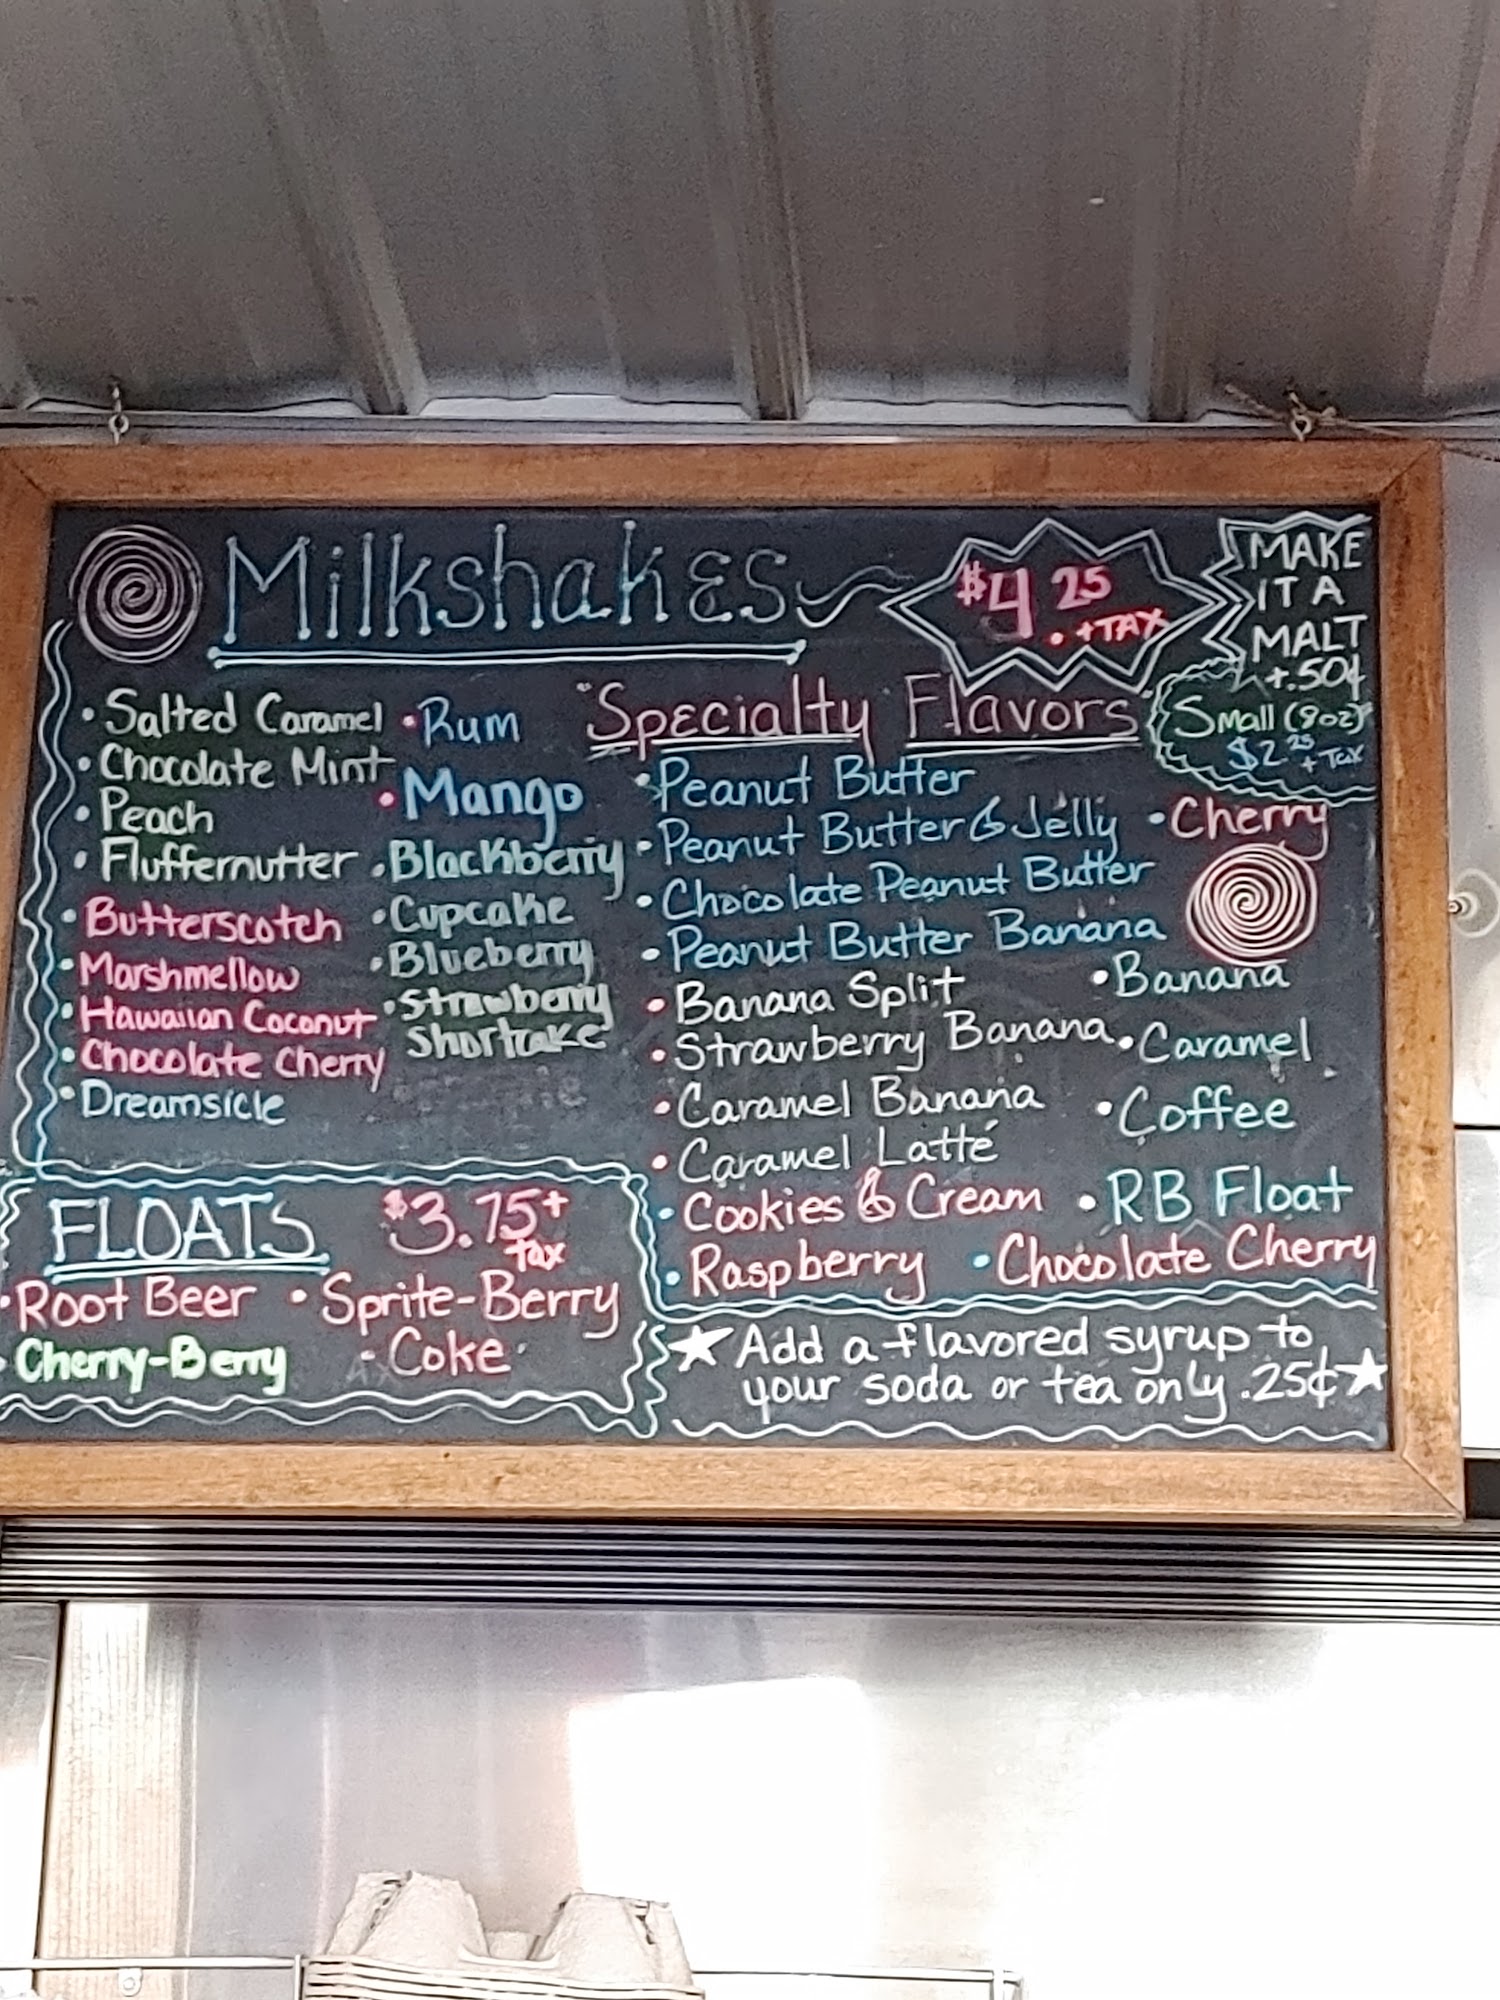 Milkshakes
$4.25
+TAX
MAKE
IT A
MALT
+.50¢
Small (8oz)
$2.25
+ Tax
• Salted Caramel
• Chocolate Mint
• Peach
• Fluffernutter
• Butterscotch
• Marshmellow
• Hawaiian Coconut
• Chocolate Cherry
• Dreamsicle
• Rum
• Mango
• Blackberry
• Cupcake
• Blueberry
• Strawberry
Shortcake
"Specialty Flavors"
• Peanut Butter
• Peanut Butter & Jelly
• Chocolate Peanut Butter
• Peanut Butter Banana
• Banana Split
• Strawberry Banana
• Caramel Banana
• Caramel Latté
• Cookies & Cream
• Raspberry
• Cherry
• Banana
• Caramel
• Coffee
• RB Float
• Chocolate Cherry
FLOATS
$3.75+
Tax
• Root Beer
• Sprite-Berry
• Cherry-Berry
• Coke
★ Add a flavored syrup to
your soda or tea only .25¢ ★